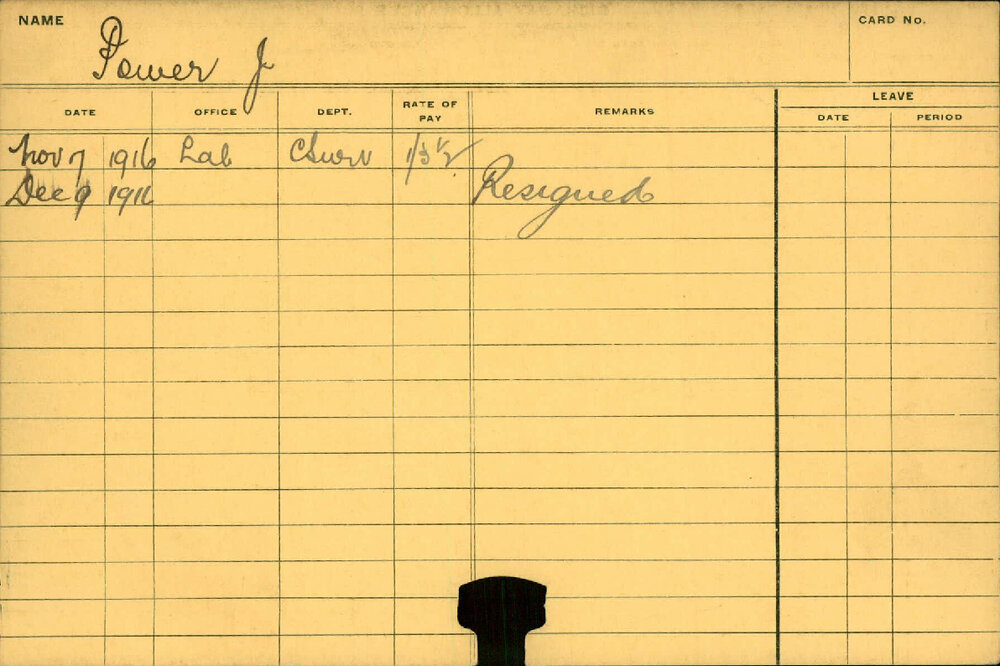 NAME
CARD No.
Power J
DATE OFFICE DEPT. RATE OF PAY REMARKS LEAVE
DATE PERIOD
Nov 7 1916 Lab 1/3 1/2
Dec 9 1916 Resigned